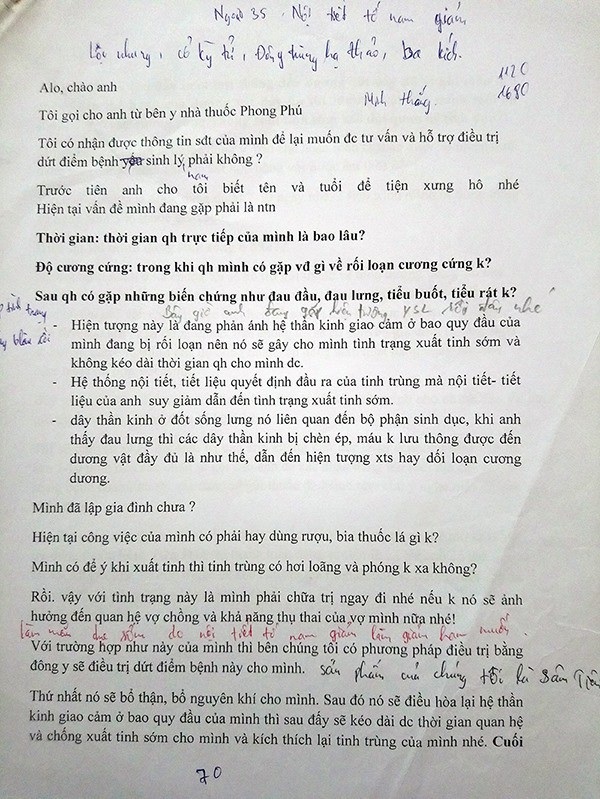 Người 35. Nội tiết tố nam giảm
Lộc nhung, cỏ kỳ tử, Đông trùng hạ thảo, ba kích.
1120
1680
Minh thắng.
Alo, chào anh
Tôi gọi cho anh từ bên y nhà thuốc Phong Phú
Tôi có nhận được thông tin sdt của mình để lại muốn đc tư vấn và hỗ trợ điều trị
dứt điểm bệnh yếu sinh lý, phải không ?
nam
Trước tiên anh cho tôi biết tên và tuổi để tiện xưng hô nhé
Hiện tại vấn đề mình đang gặp phải là ntn
Thời gian: thời gian qh trực tiếp của mình là bao lâu?
Độ cương cứng: trong khi qh mình có gặp vđ gì về rối loạn cương cứng k?
Sau qh có gặp những biến chứng như đau đầu, đau lưng, tiểu buốt, tiểu rát k?
Bây giờ anh đang gặp hiện tượng YSL rồi nhé
tình trạng
- Hiện tượng này là đang phản ánh hệ thần kinh giao cảm ở bao quy đầu của
mình đang bị rối loạn nên nó sẽ gây cho mình tình trạng xuất tinh sớm và
không kéo dài thời gian qh cho mình dc.
- Hệ thống nội tiết, tiết liệu quyết định đầu ra của tinh trùng mà nội tiết- tiết
liệu của anh suy giảm dẫn đến tình trạng xuất tinh sớm.
- dây thần kinh ở đốt sống lưng nó liên quan đến bộ phận sinh dục, khi anh
thấy đau lưng thì các dây thần kinh bị chèn ép, máu k lưu thông được đến
dương vật đầy đủ là như thế, dẫn đến hiện tượng xts hay dối loạn cương
dương.
Mình đã lập gia đình chưa ?
Hiện tại công việc của mình có phải hay dùng rượu, bia thuốc lá gì k?
Mình có để ý khi xuất tinh thì tinh trùng có hơi loãng và phóng k xa không?
Rồi. vậy với tình trạng này là mình phải chữa trị ngay đi nhé nếu k nó sẽ ảnh
hưởng đến quan hệ vợ chồng và khả năng thụ thai của vợ mình nữa nhé!
lãn mãn dục sớm do nội tiết tố nam giảm làm giảm ham muốn.
Với trường hợp như này của mình thì bên chúng tôi có phương pháp điều trị bằng
đông y sẽ điều trị dứt điểm bệnh này cho mình. sản phẩm của chúng tôi là Sâm
Thứ nhất nó sẽ bổ thận, bổ nguyên khí cho mình. Sau đó nó sẽ điều hòa lại hệ thần
kinh giao cảm ở bao quy đầu của mình thì sau đấy sẽ kéo dài dc thời gian quan hệ
và chống xuất tinh sớm cho mình và kích thích lại tinh trùng của mình nhé. Cuối
70